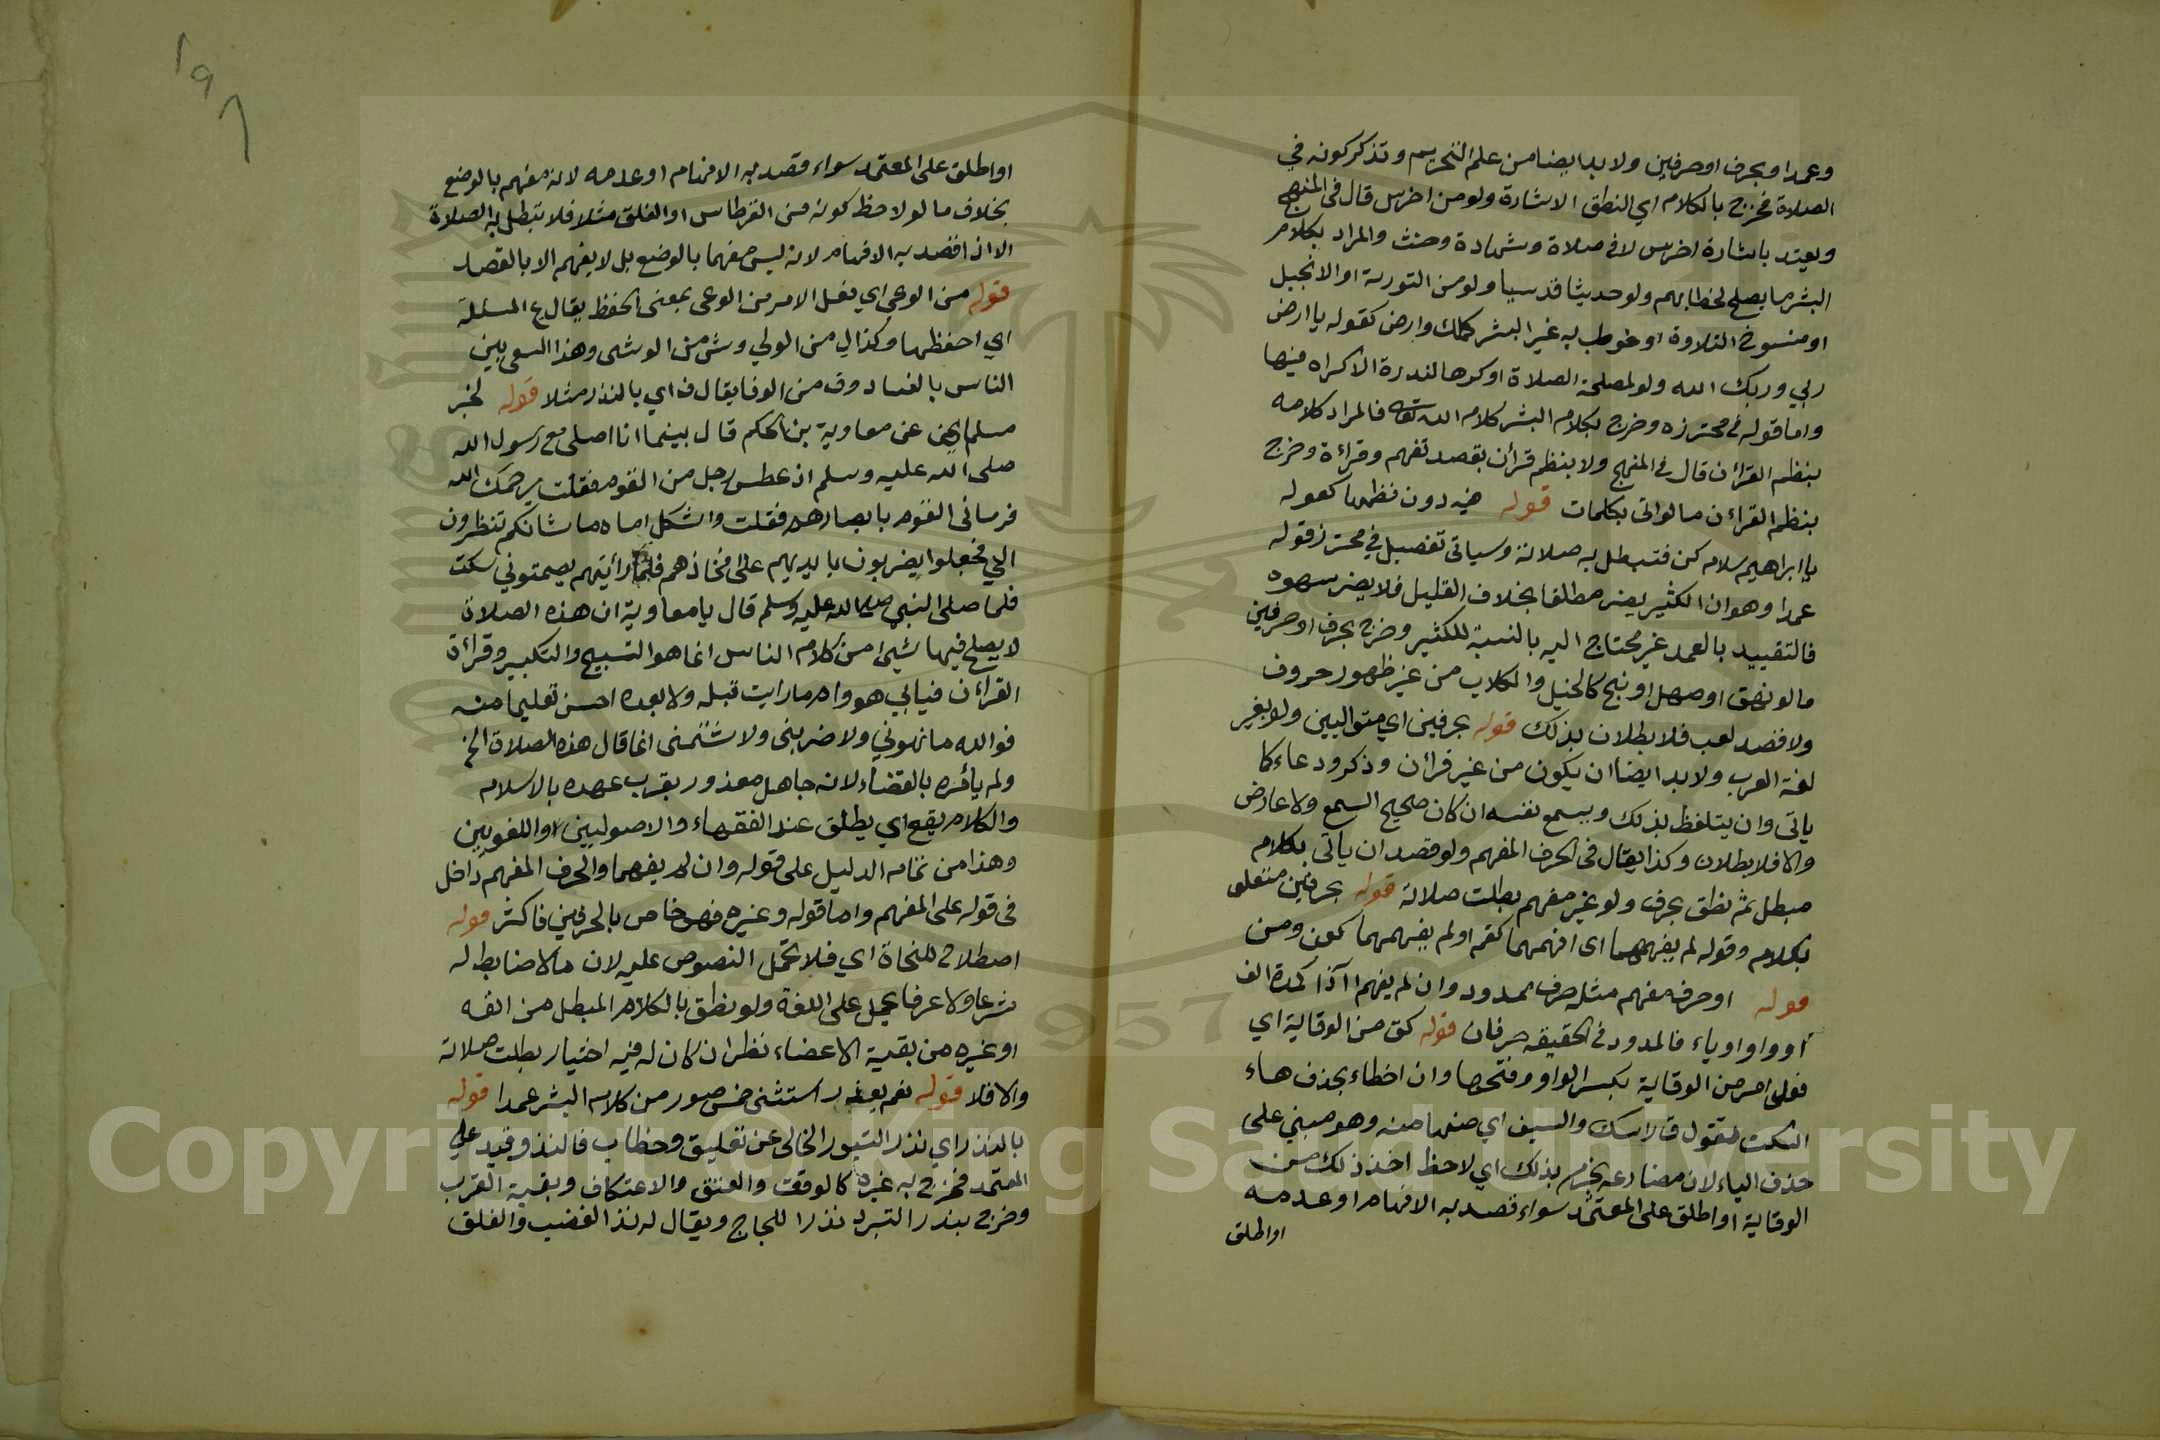 وعمدا وبحرف اوحرفين ولا بد ايضا من علم التحريم وتذكر كونه في
الصلاة فخرج بالكلام اي النطق الاشارة ولو من اخرس قال في المنهج
ويعتد باشارة اخرس لا في صلاة وشهادة وحنث والمراد بكلام
البشر ما يصلح لخطابهم ولو حديثا قدسيا ولو من التورية او الانجيل
او منسوخ التلاوة او خوطب به غير البشر كملك وارض كقوله يا ارض
ربي وربك الله ولو لمصلحة الصلاة او كرها لندرة الاكراه فيها
واما قوله في محترزه وخرج بكلام البشر كلام الله تعالى فالمراد كلامه
بنظم القرأن قال في المنهج ولا بنظم قرأن بقصد تفهم وقراءة وخرج
بنظم القرأن ما لو اتى بكلمات قوله فيه دون نظمها كقوله
يا ابراهيم سلام كن فتبطل به صلاته وسياتي تفصيل في محترز قوله
عمدا وهو ان الكثير يضر مطلقا بخلاف القليل فلا يضر سهوه
فالتقييد بالعمد غير محتاج اليه بالنسبة للكثير وخرج بحرف او حرفين
ما لو نهق او صهل او نبح كالخيل والكلاب من غير ظهور حروف
ولا قصد لعب فلا بطلان بذلك قوله بحرفين اي متواليين ولو بغير
لغة العرب ولا بد ايضا ان يكون من غير قرأن وذكر ودعاء كما
ياتي وان يتلفظ بذلك ويسمع نفسه ان كان صحيح السمع ولا عارض
والا فلا بطلان وكذا يقال في الحرف المفهم ولو قصد ان ياتي بكلام
مبطل ثم نطق بحرف ولو غير مفهم بطلت صلاته قوله بحرفين متعلق
بكلام وقوله لم يفهمهما اي افهمهما كقم او لم يفهمهما كعن ومن
قوله او حرف مفهم مثله حرف ممدود وان لم يفهم اآ اذ المدة الف
او واو او ياء فالممدود في الحقيقه حرفان قوله كق من الوقاية اي
فعل امر من الوقاية بكسر الواو وفتحها وان اخطاء بحذف هاء
السكت تقول ق راسك والسيف اي صنها منه وهو مبني على
حذف الياء لان مضارعه يجزم بذلك اي لاحظ اخذ ذلك من
الوقاية او اطلق على المعتمد سواء قصد به الافهام او عدمه
او اطلق
١٩٦
او اطلق على المعتمد سواء قصد به الافهام او عدمه لانه مفهم بالوضع
بخلاف ما لو لاحظ كونه من القرطاس او الفلق مثلا فلا تبطل به الصلاة
الا ان قصد به الافهام لانه ليس مفهما بالوضع بل لا يفهم الا بالقصد
قوله من الوعي اي فعل الامر من الوعي بمعنى الحفظ يقال ع المسئلة
اي احفظها وكذا ل من الولي وش من الوشي وهذا السعي بين
الناس بالفساد وف من الوفا يقال ف اي بالنذر مثلا قوله لخبر
مسلم اي عن معاوية بن الحكم قال بينما انا اصلي مع رسول الله
صلى الله عليه وسلم اذ عطس رجل من القوم فقلت يرحمك الله
فرماني القوم بابصارهم فقلت واثكل اماه ما شانكم تنظرون
الي فجعلوا يضربون بايديهم على افخاذهم فلما رأيتهم يصمتوني سكت
فلما صلى النبي صلى الله عليه وسلم قال يا معاوية ان هذه الصلاة
لا يصلح فيها شيئ من كلام الناس انما هو التسبيح والتكبير وقرأة
القرأن فبابي هو وامي ما رايت قبله ولا بعده احسن تعليما منه
فوالله ما نهرني ولا ضربني ولا شتمني انما قال هذه الصلاة الخ
ولم يأمره بالقضاء لانه جاهل معذور بقرب عهده بالاسلام
والكلام يقع اي يطلق عند الفقهاء والاصوليين واللغويين
وهذا من تمام الدليل على قوله وان لم يفهما والحرف المفهم داخل
في قوله على المفهم واما قوله وغيره فهو خاص بالحرفين فاكثر قوله
اصطلاح للنحاة اي فلا تحمل النصوص عليه لان ما لا ضابط له
شرعا ولا عرفا يحمل على اللغة ولو نطق بالكلام المبطل من انفه
او غيره من بقية الاعضاء نظر ان كان له فيه اختيار بطلت صلاته
والا فلا قوله نعم يعذر استثنى خمس صور من كلام البشر عمدا قوله
بالنذر اي نذر التبرر الخالي عن تعليق وخطاب فالنذر قيد على
المعتمد فخرج به غيره كالوقف والعتق والاعتكاف وبقية القرب
وخرج بنذر التبرر نذر اللجاج ويقال له نذر الغضب والغلق
Copyright © King Saud University
1957